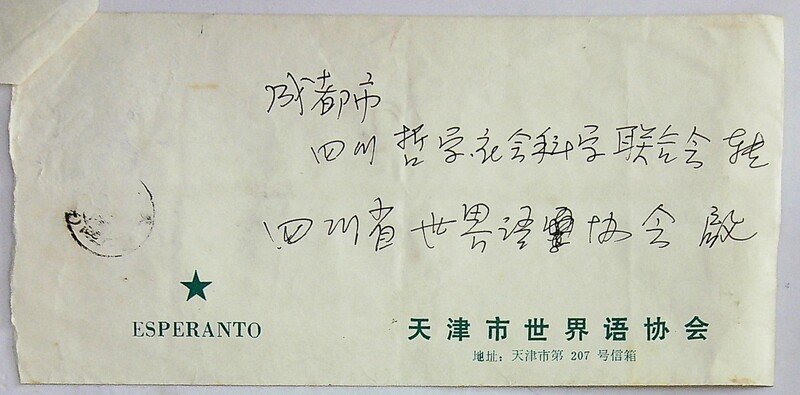 成都市
四川哲学社会科学联合会转
四川省世界语协会
ESPERANTO
天津市世界语协会
地址：天津市第 207 号信箱